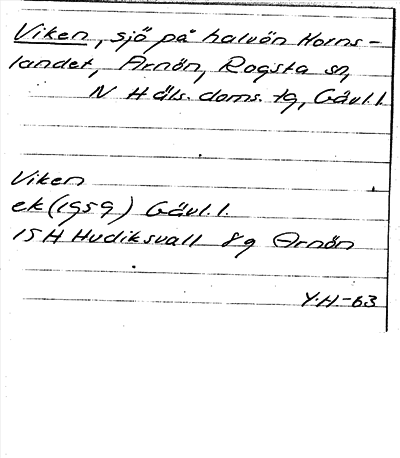 Viken, sjö på halvön Horns-
landet, Arnön, Rogsta sn,
N Häls. doms. tg, Gävl. l.
Viken
ek (1959) Gävl. l.
15H Hudiksvall 8g Arnön
Y.H-63